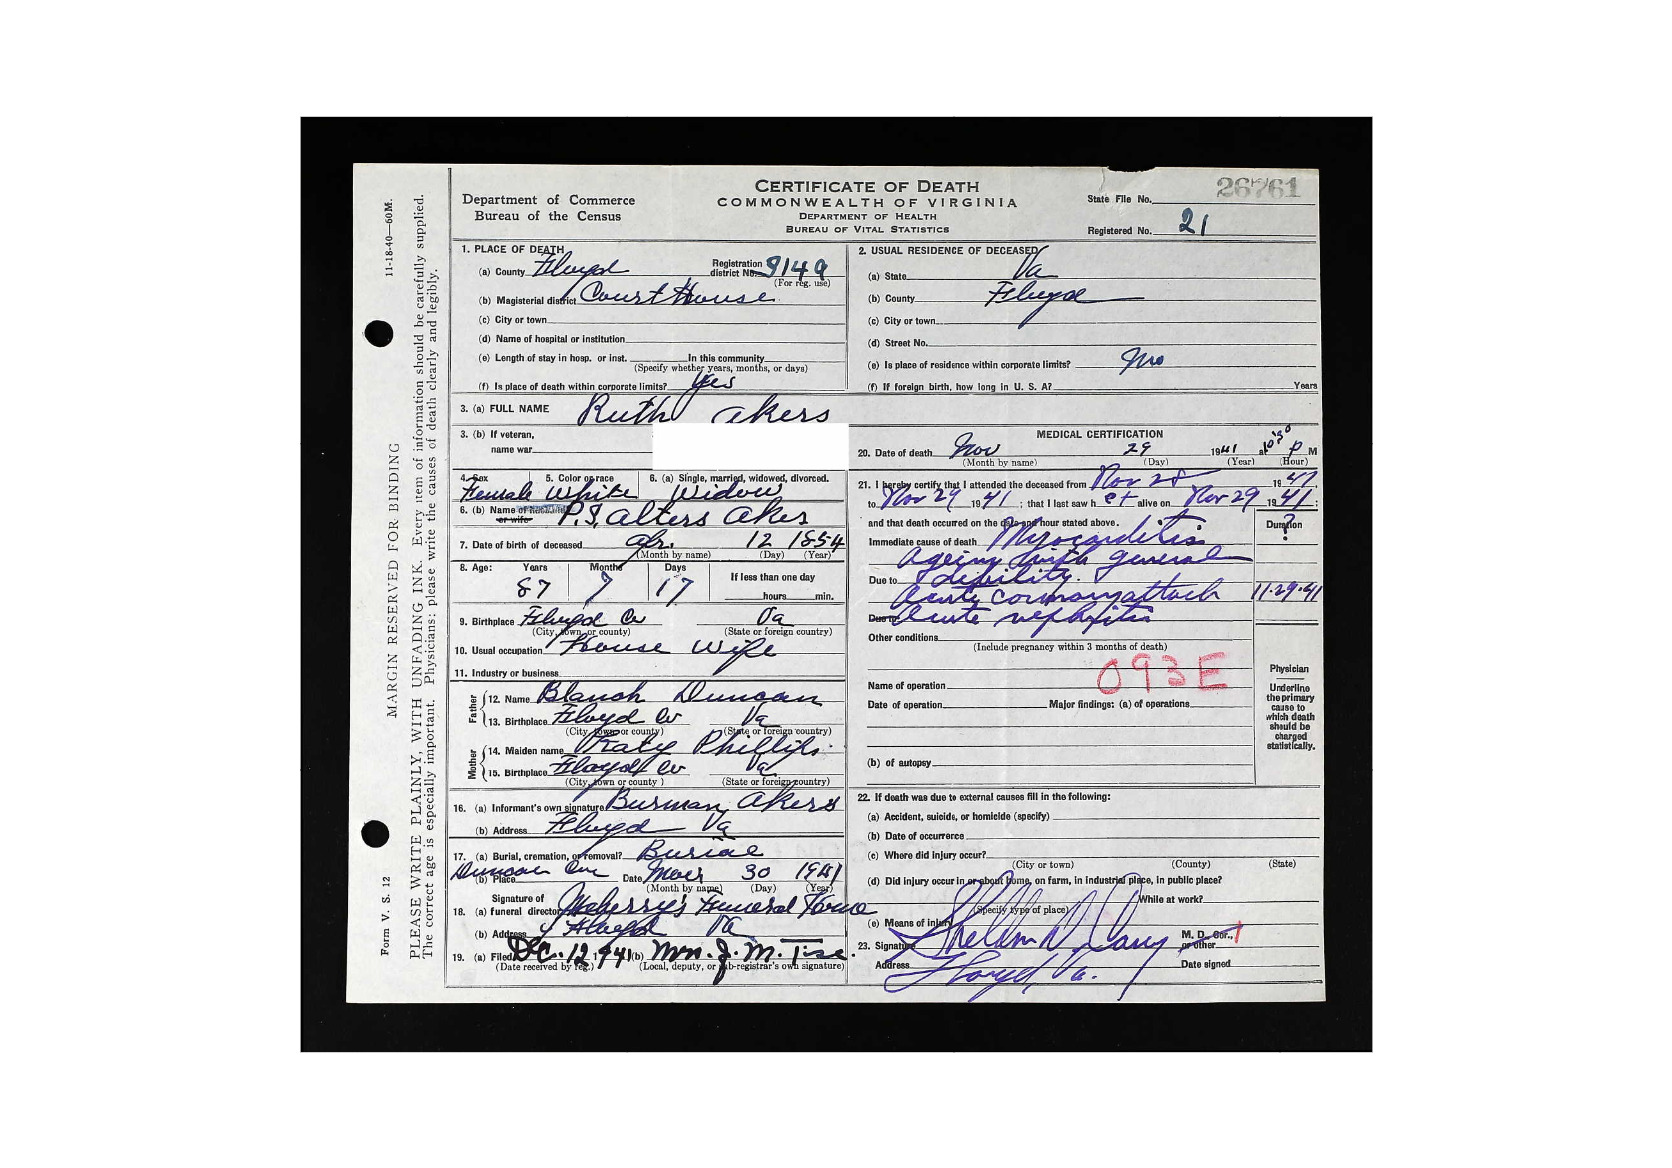 11-18-40—60M.
MARGIN RESERVED FOR BINDING
Form V. S. 12
PLEASE WRITE PLAINLY, WITH UNFADING INK. Every item of information should be carefully supplied.
The correct age is especially important. Physicians: please write the causes of death clearly and legibly.
Department of Commerce
Bureau of the Census
CERTIFICATE OF DEATH
COMMONWEALTH OF VIRGINIA
DEPARTMENT OF HEALTH
BUREAU OF VITAL STATISTICS
State File No. 26761
Registered No. 21
1. PLACE OF DEATH
(a) County Floyd Registration district No. 3149
(For reg. use)
(b) Magisterial district Court House
(c) City or town
(d) Name of hospital or institution
(e) Length of stay in hosp. or inst. In this community
(Specify whether years, months, or days)
(f) Is place of death within corporate limits? Yes
2. USUAL RESIDENCE OF DECEASED
(a) State Va
(b) County Floyd
(c) City or town
(d) Street No.
(e) Is place of residence within corporate limits?
(f) If foreign birth, how long in U. S. A? Years
3. (a) FULL NAME Ruth Akers
3. (b) If veteran,
name war
4. Sex 5. Color or race 6. (a) Single, married, widowed, divorced.
Female White Widow
6. (b) Name of husband or wife P.S. Alters Akers
7. Date of birth of deceased Apr. 12 1854
(Month by name) (Day) (Year)
8. Age: Years Months Days If less than one day
87 7 17
hours min.
9. Birthplace Floyd Co Va
(City, town, or county) (State or foreign country)
10. Usual occupation House Wife
11. Industry or business
Father
12. Name Blanch Duncan
13. Birthplace Floyd Co Va
(City, town or county) (State or foreign country)
Mother
14. Maiden name Katy Phillips
15. Birthplace Floyd Co Va
(City, town or county) (State or foreign country)
16. (a) Informant's own signature Burman Akers
(b) Address Floyd Va
17. (a) Burial, cremation, or removal? Burial
(b) Place Duncan Date Nov 30 1941
(Month by name) (Day) (Year)
Signature of
18. (a) funeral director Funeral Home
(b) Address Floyd Va
19. (a) Filed Dec. 12 1941 (b) Mrs. J. M. Tise.
(Date received by reg.) (Local, deputy, or sub-registrar's own signature)
MEDICAL CERTIFICATION
20. Date of death Nov 29 1941 at 10:30 P M
(Month by name) (Day) (Year) (Hour)
21. I hereby certify that I attended the deceased from Nov 28 1941,
to Nov 29 1941; that I last saw her alive on Nov 29 1941;
and that death occurred on the date and hour stated above. Duration
Immediate cause of death Myocarditis ?
ageing with general
Due to debility.
Acute coronary attack 11-29-41
Due to Acute nephritis
Other conditions
(Include pregnancy within 3 months of death)
093E
Name of operation
Date of operation Major findings: (a) of operations
(b) of autopsy
Physician
Underline
the primary
cause to
which death
should be
charged
statistically.
22. If death was due to external causes fill in the following:
(a) Accident, suicide, or homicide (specify)
(b) Date of occurrence
(c) Where did injury occur?
(City or town) (County) (State)
(d) Did injury occur in or about home, on farm, in industrial place, in public place?
While at work?
(Specify type of place)
(e) Means of injury
23. Signature M. D. Cor., or other
Address Floyd, Va. Date signed